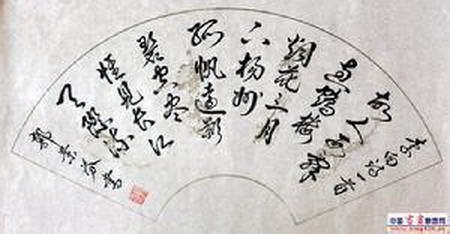 李白诗一首
故人西辞
黄鹤楼
烟花三月
下扬州
孤帆远影
碧空尽
惟见长江
天际流